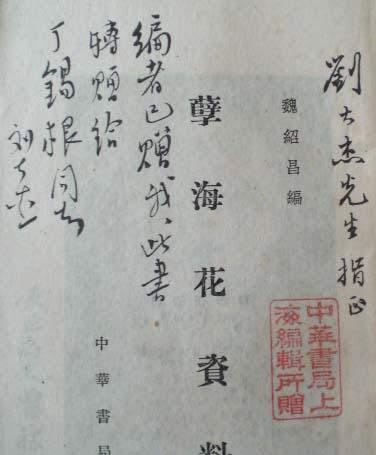 劉大杰先生指正
魏紹昌編
孽海花資料
中華書局
中華書局上
海編輯所贈
编者已赠我，此書
轉赠给
丁錫根同志
刘大杰